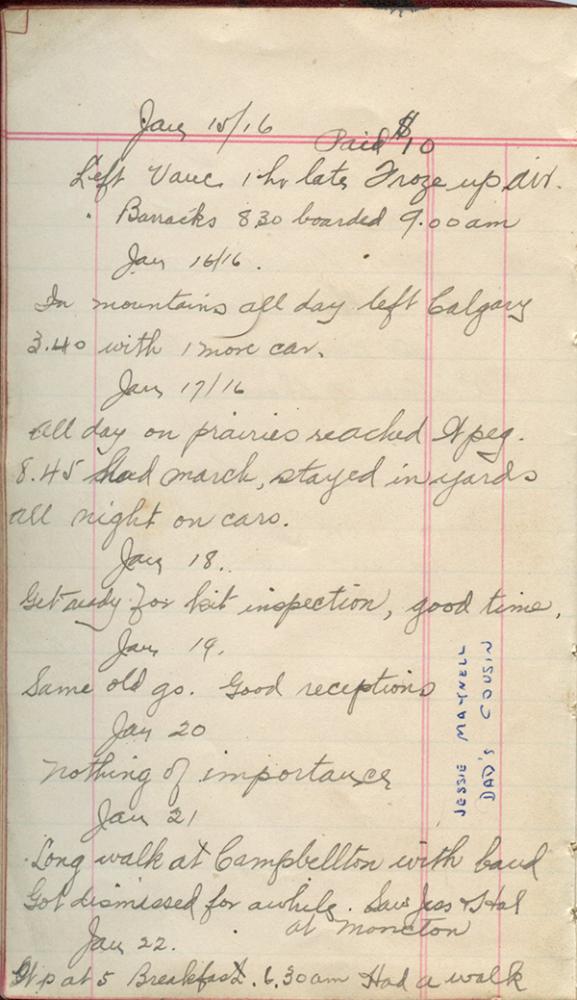 Jan 15/16
Paid $10
Left Vanc. 1 hr late, Froze up div.
Barracks 8.30 boarded 9.00 am
Jan 16/16.
In mountains all day left Calgary
3.40 with 1 more car.
Jan 17/16
All day on prairies reached Wpeg.
8.45 Had march, stayed in yards
all night on cars.
Jan 18.
Get ready for kit inspection, good time.
Jan 19.
Same old go. Good receptions
Jan 20
Nothing of importance
Jan 21
Long walk at Campbellton with band
Got dismissed for awhile. Saw Jess & Hal
at Moncton
Jan 22.
Up at 5 Breakfast. 6.30 am Had a walk
JESSIE MAYNELL
DAD'S COUSIN